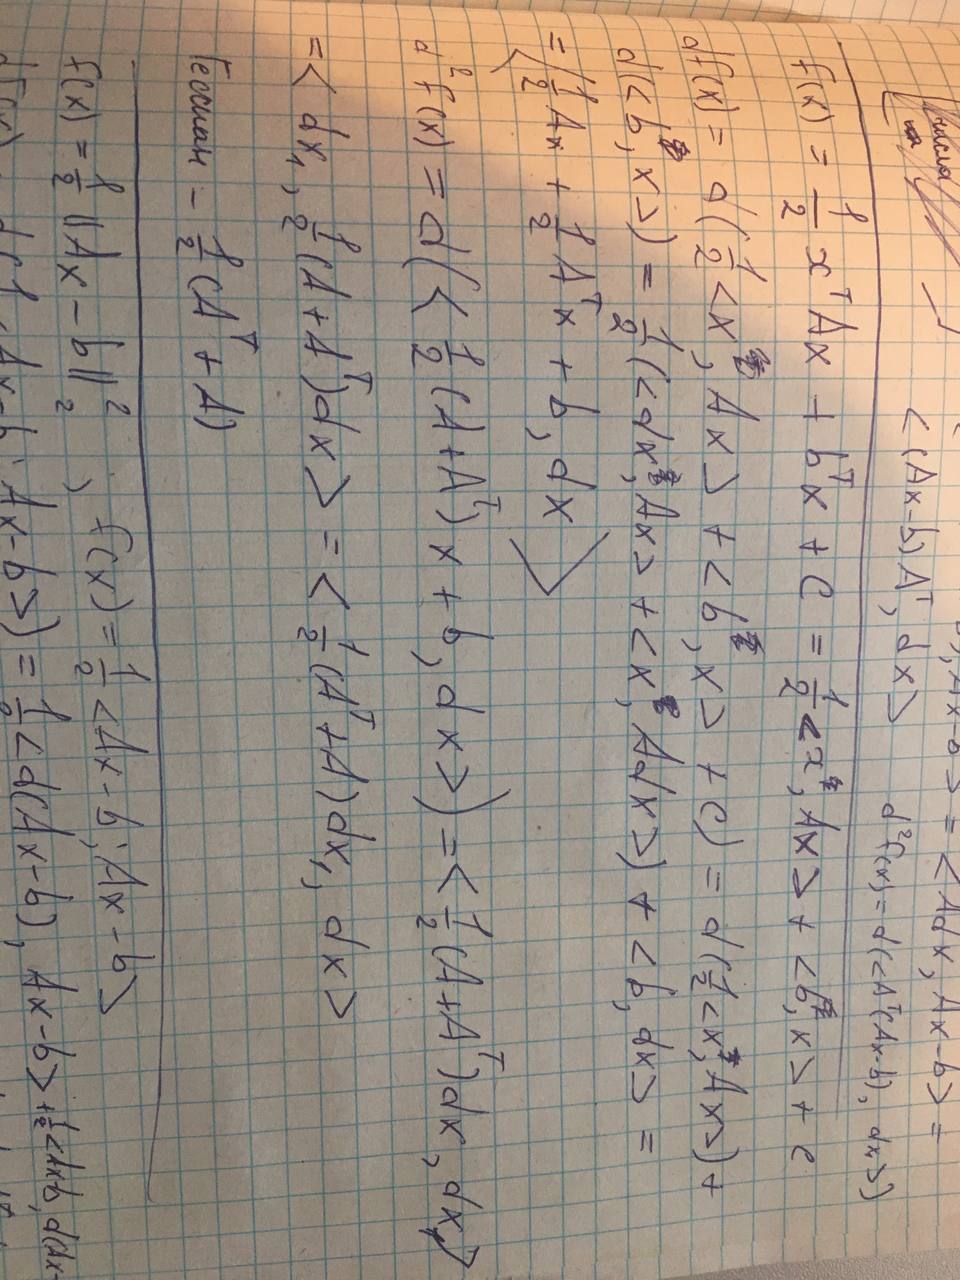 , Ax-b> = <Adx, Ax-b> =
<(Ax-b)Aᵀ, dx> d²f(x) = d(<Aᵀ(Ax-b), dx>)
числа
f(x) = 1/2 xᵀAx + bᵀx + C = 1/2 <x, Ax> + <b, x> + c
df(x) = d(1/2 <x, Ax> + <b, x> + C) = d(1/2 <x, Ax>) +
d(<b, x>) = 1/2 (<dx, Ax> + <x, Adx>) + <b, dx> =
= <1/2 Ax + 1/2 Aᵀx + b, dx>
d²f(x) = d(<1/2 (A+Aᵀ)x + b, dx>) = <1/2 (A+Aᵀ)dx, dx₁>
= <dx₁, 1/2 (A+Aᵀ)dx> = <1/2 (Aᵀ+A)dx₁, dx>
Гессиан - 1/2 (Aᵀ + A)
f(x) = 1/2 ||Ax - b||₂², f(x) = 1/2 <Ax-b, Ax-b>
df(x) = d(1/2 <Ax-b, Ax-b>) = 1/2 <d(Ax-b), Ax-b> + 1/2 <Ax-b, d(Ax-